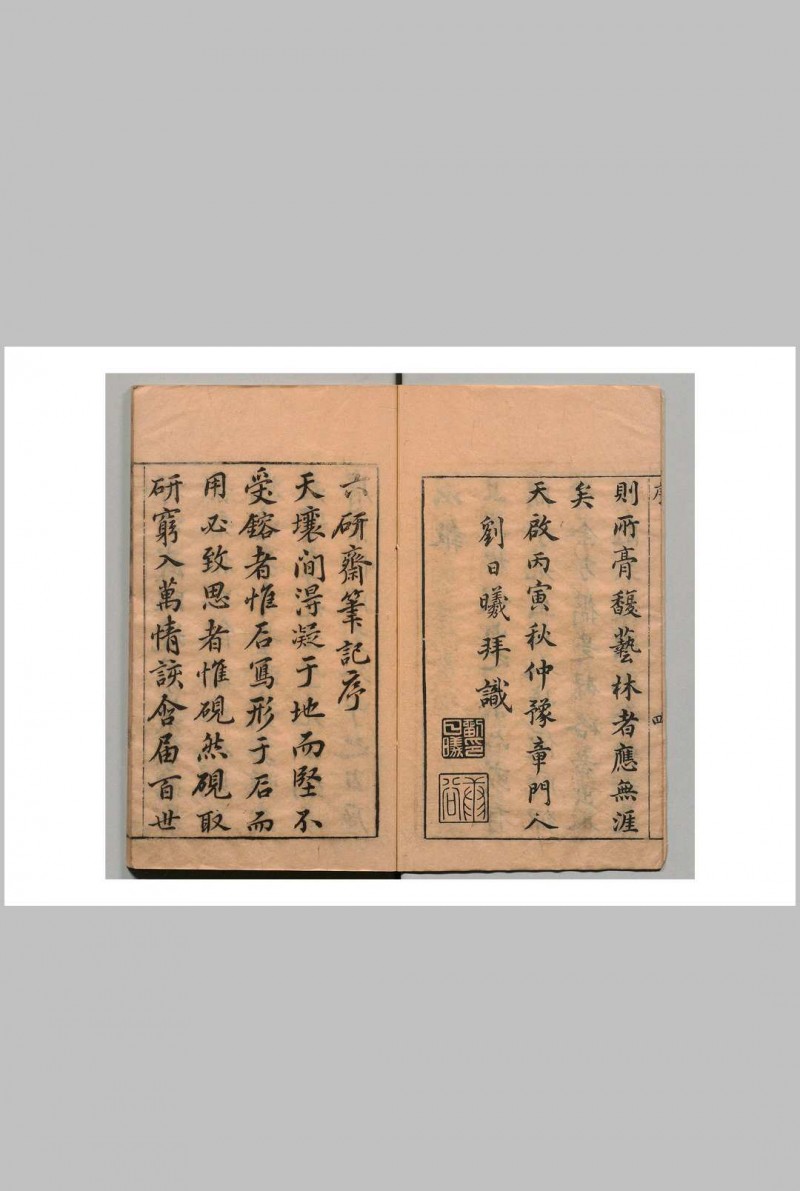 則所膏馥藝林者應無涯
矣
天啟丙寅秋仲豫章門人
劉日曦拜識
序
四
六研齋筆記序
天壤間淂凝于地而堅不
受鎔者惟石寫形于石而
用必致思者惟硯然硯取
研窮入萬情該含届百世